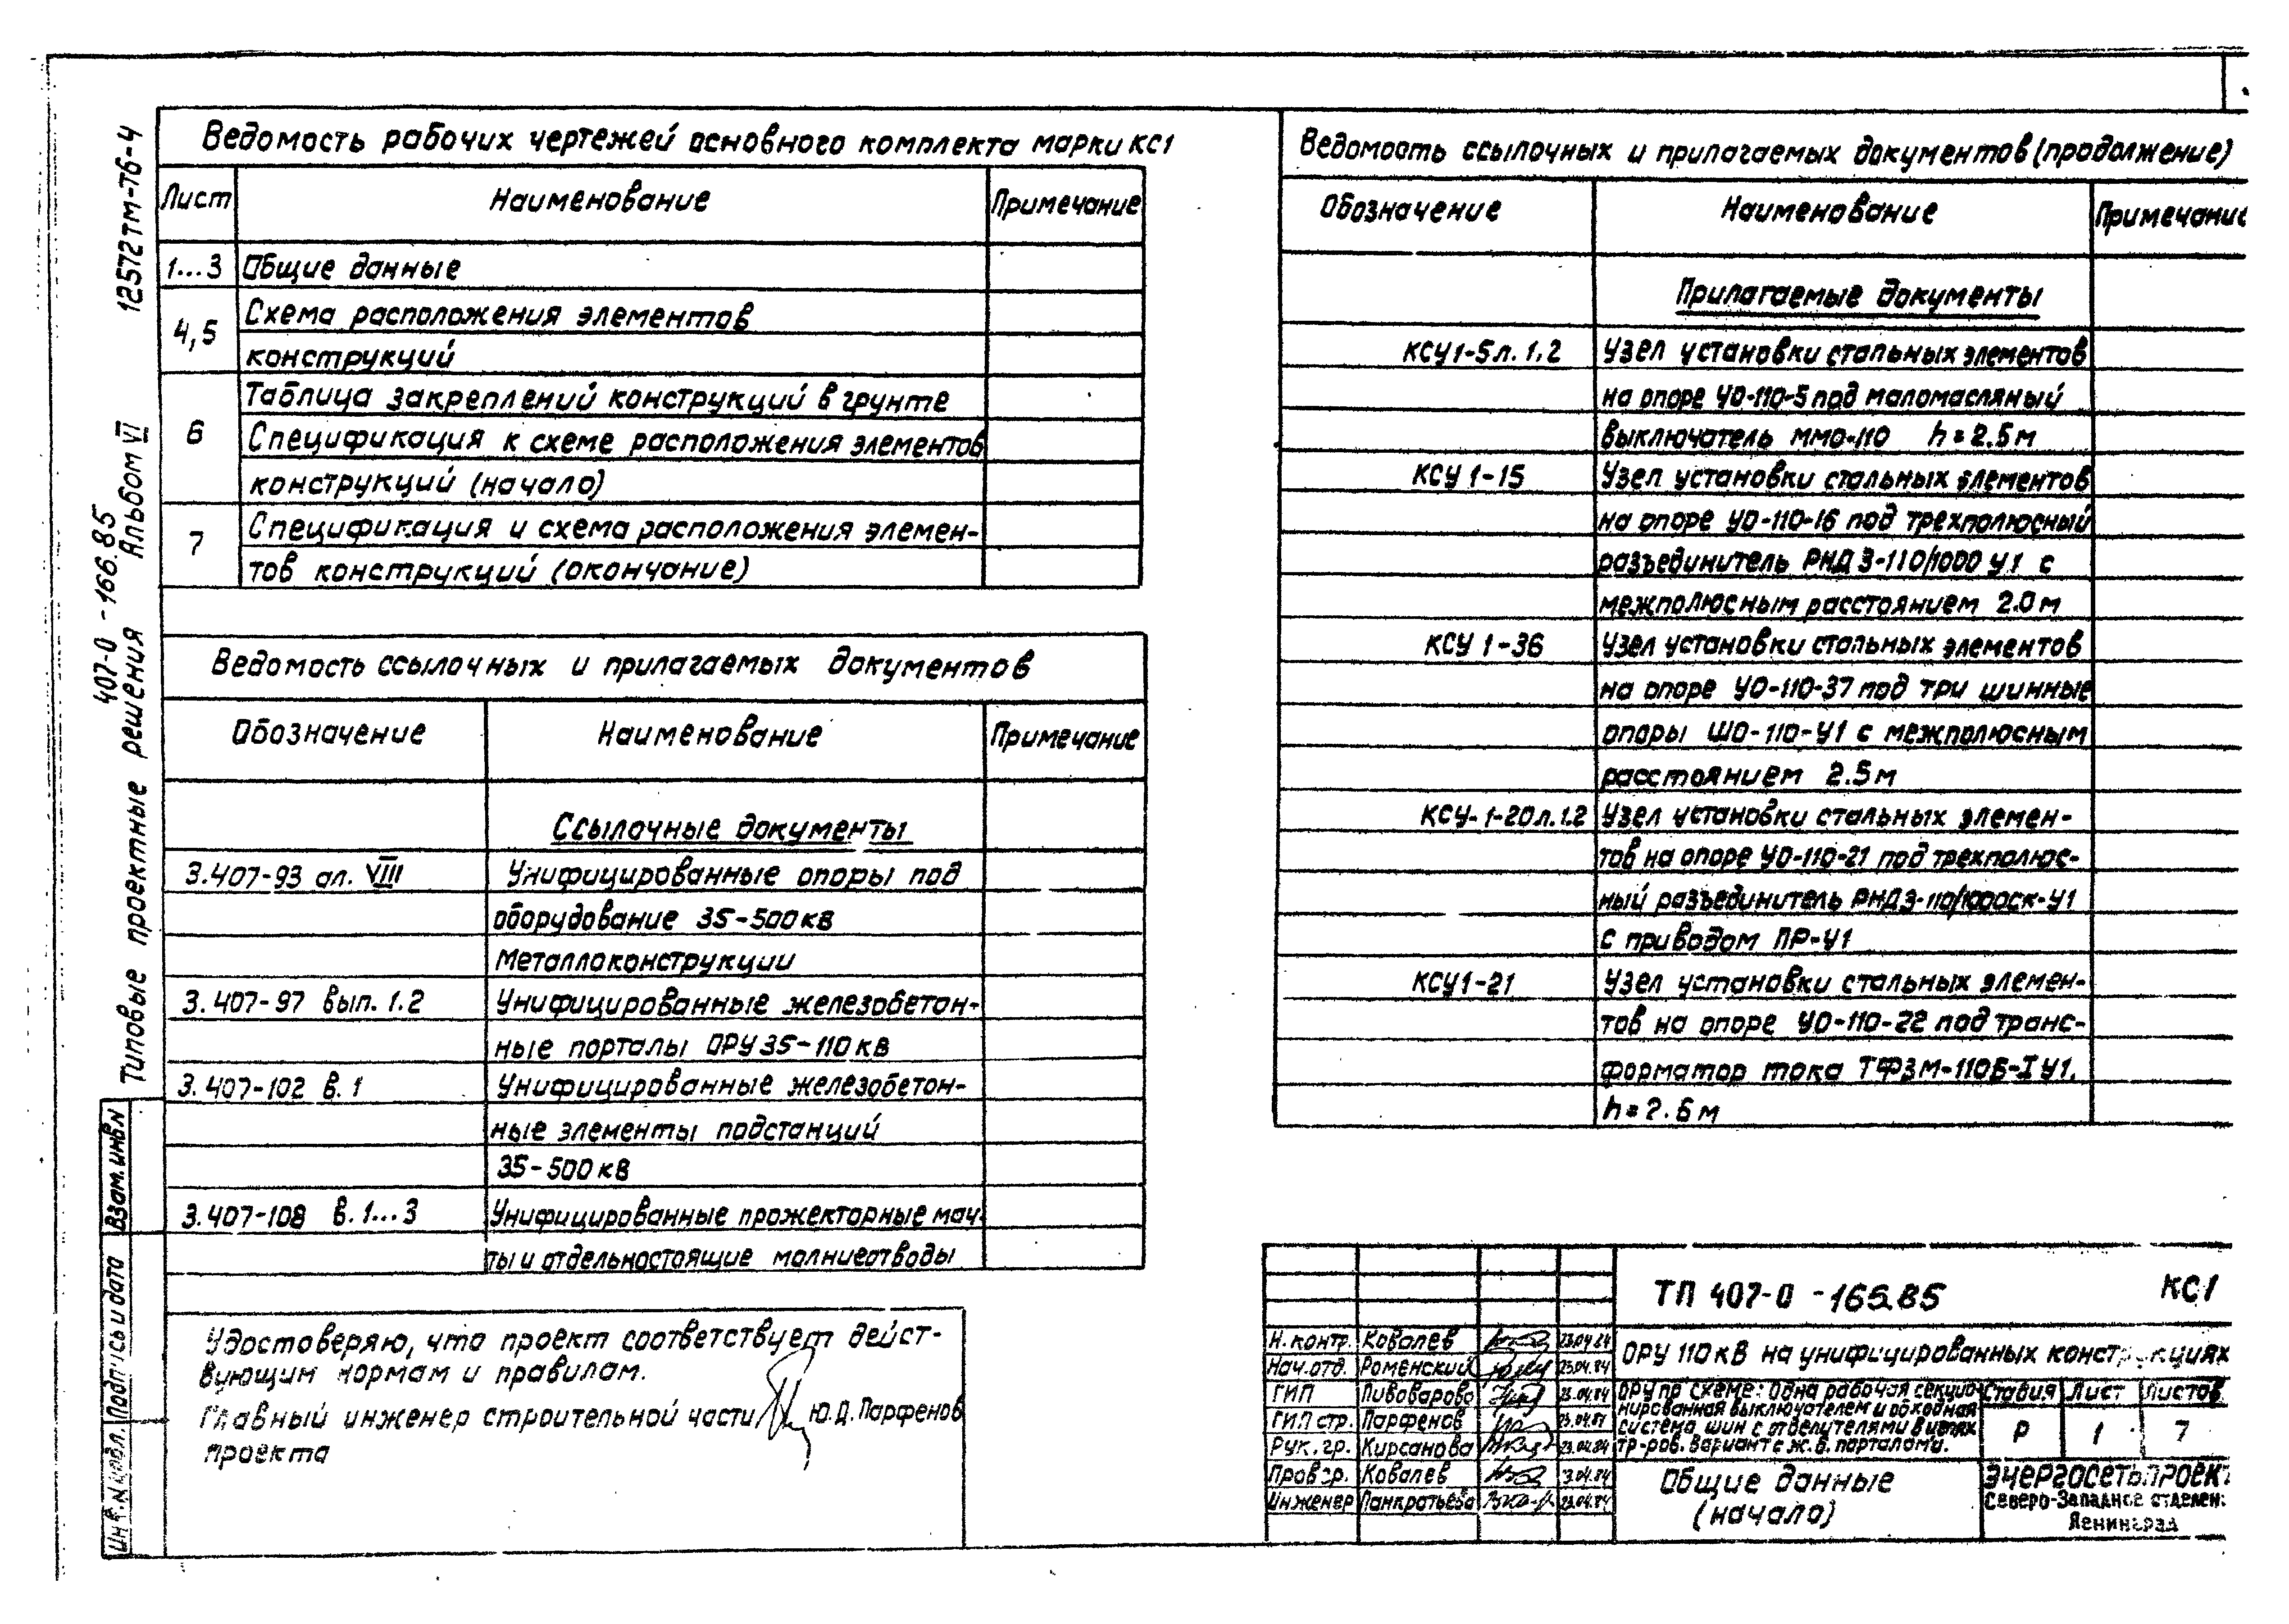 12572тм-т6-4
407-0-166.85 Альбом VI
Типовые проектные решения
Ведомость рабочих чертежей основного комплекта марки КС1
Лист Наименование Примечание
1...3 Общие данные
4,5 Схема расположения элементов
конструкций
Таблица закреплений конструкций в грунте
6 Спецификация к схеме расположения элементов
конструкций (начало)
7 Спецификация и схема расположения элемен-
тов конструкций (окончание)
Ведомость ссылочных и прилагаемых документов
Обозначение Наименование Примечание
Ссылочные документы
3.407-93 ал. VIII Унифицированные опоры под
оборудование 35-500кв
Металлоконструкции
3.407-97 вып. 1.2 Унифицированные железобетон-
ные порталы ОРУ 35-110 кв
3.407-102 в. 1 Унифицированные железобетон-
ные элементы подстанций
35-500 кв
3.407-108 в. 1...3 Унифицированные прожекторные мач-
ты и отдельностоящие молниеотводы
Удостоверяю, что проект соответствует дейст-
вующим нормам и правилам.
Главный инженер строительной части Ю.Д. Парфенов
проекта
Взам. инв N
Подпись и дата
Инв. N подл.
Ведомость ссылочных и прилагаемых документов (продолжение)
Обозначение Наименование Примечание
Прилагаемые документы
КСУ1-5л. 1,2 Узел установки стальных элементов
на опоре УО-110-5 под маломасляный
выключатель ММО-110 h=2.5м
КСУ 1-15 Узел установки стальных элементов
на опоре УО-110-16 под трехполюсный
разъединитель РНДЗ-110/1000 У1 с
межполюсным расстоянием 2.0м
КСУ 1-36 Узел установки стальных элементов
на опоре УО-110-37 под три шинные
опоры ШО-110-У1 с межполюсным
расстоянием 2.5м
КСУ-1-20л.1.2 Узел установки стальных элемен-
тов на опоре УО-110-21 под трехполюс-
ный разъединитель РНДЗ-110/1000СК-У1
с приводом ПР-У1
КСУ1-21 Узел установки стальных элемен-
тов на опоре УО-110-22 под транс-
форматор тока ТФЗМ-110Б-I У1.
h=2.6м
ТП 407-0-166.85 КС1
Н.контр. Ковалев 23.04.84
Нач.отд. Роменский 23.04.84
ГИП Пивоварова 23.04.84
ГИП стр. Парфенов 23.04.84
Рук. гр. Кирсанова 23.04.84
Провер. Ковалев 23.04.84
Инженер Панкратьева 23.04.84
ОРУ 110кВ на унифицированных конструкциях
ОРУ по схеме: одна рабочая секцио-
нированная выключателем и обходная
система шин с отделителями в цепях
тр-ров. Вариант с ж.б. порталами.
Стадия Лист Листов
Р 1 7
Общие данные
(начало)
ЭНЕРГОСЕТЬПРОЕКТ
Северо-Западное отделен:
Ленинград